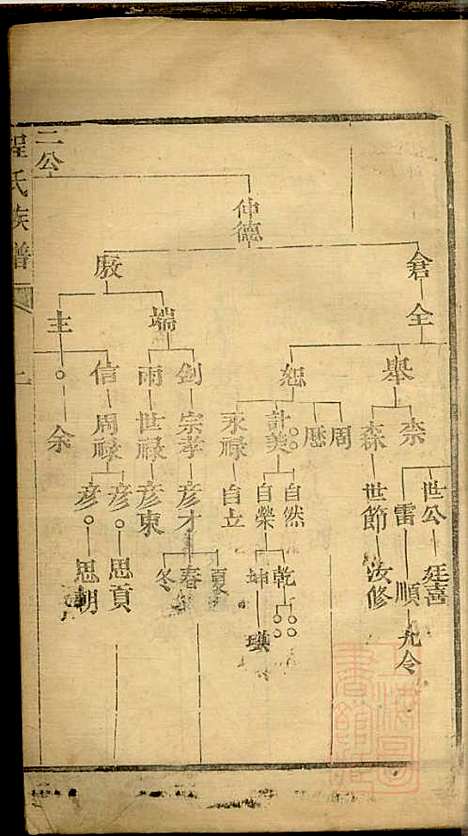 二公
程氏族譜
二
仲德
倉 廒
全 端 主
舉 恕 劍 雨 信 ○
柰 森 周 歷 計美 永祿 宗孝 世祿 周祿 余
世公 雷 世節 自然 自榮 自立 彥才 彥東 彥○ 彥○
廷喜 順 汝修 乾 坤 夏 春 冬 思貢 思朝
允令 ○○ ○○ 瑛